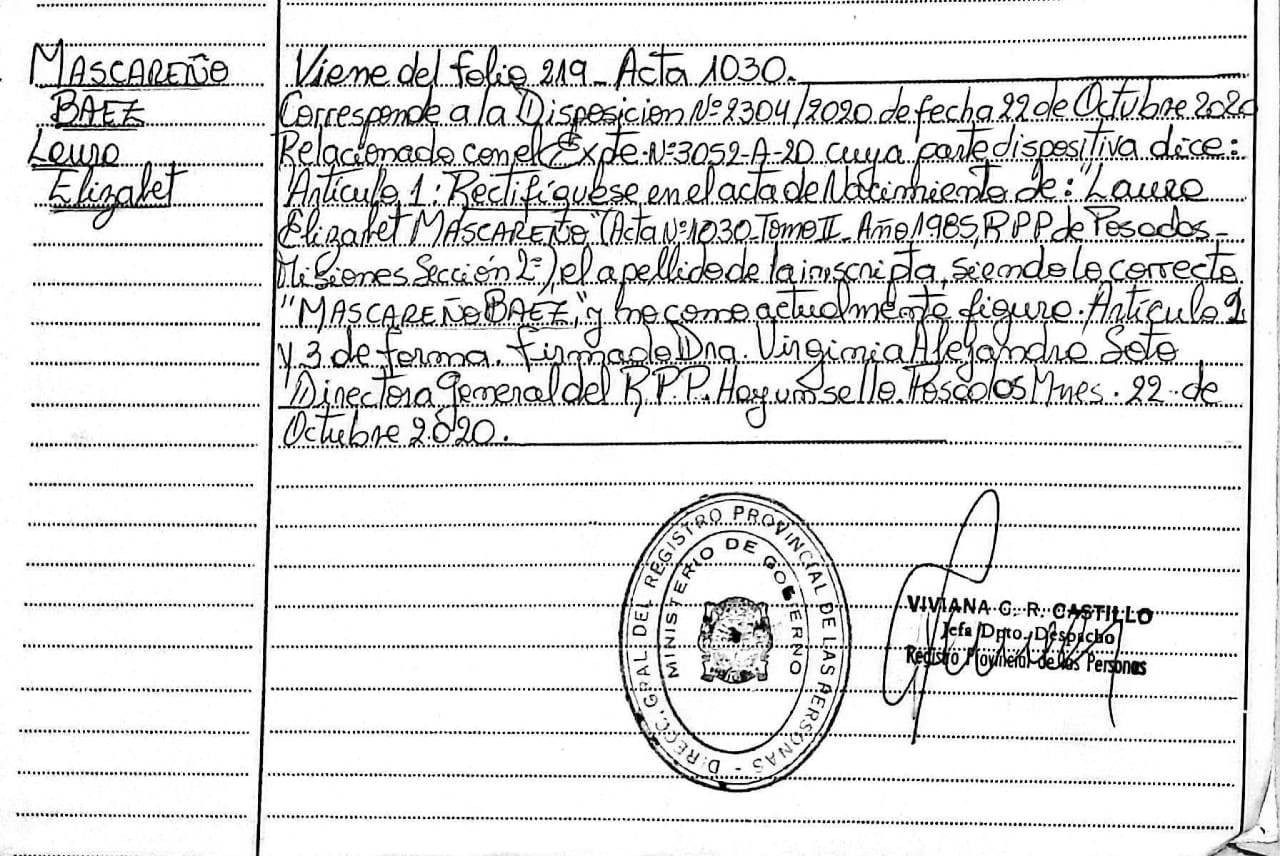 MASCAREÑO
BAEZ
Laura
Elizabet
Viene del folio 219 - Acta 1030.
Corresponde a la Disposicion Nº 2304/2020 de fecha 22 de Octubre 2020
Relacionado con el Expte. Nº 3052-A-20 cuya parte dispositiva dice:
"Artículo 1: Rectifíquese en el acta de Nacimiento de: "Laura
Elizabet MASCAREÑO" (Acta Nº 1030-Tomo II - Año 1985, RPP de Posadas-
Misiones Sección 2ª), el apellido de la inscripta, siendo lo correcto
"MASCAREÑO BAEZ," y no como actualmente figura. Artículo 2
y 3 de forma. Firmado Dra. Virginia Alejandra Soto
Directora General del R.P.P. Hay un sello. Posadas Mnes. 22 de
Octubre 2020.
DIRECC. GRAL DEL REGISTRO PROVINCIAL DE LAS PERSONAS -
MINISTERIO DE GOBIERNO
VIVIANA G. R. CASTILLO
Jefa Dpto. Despacho
Registro Provincial de las Personas